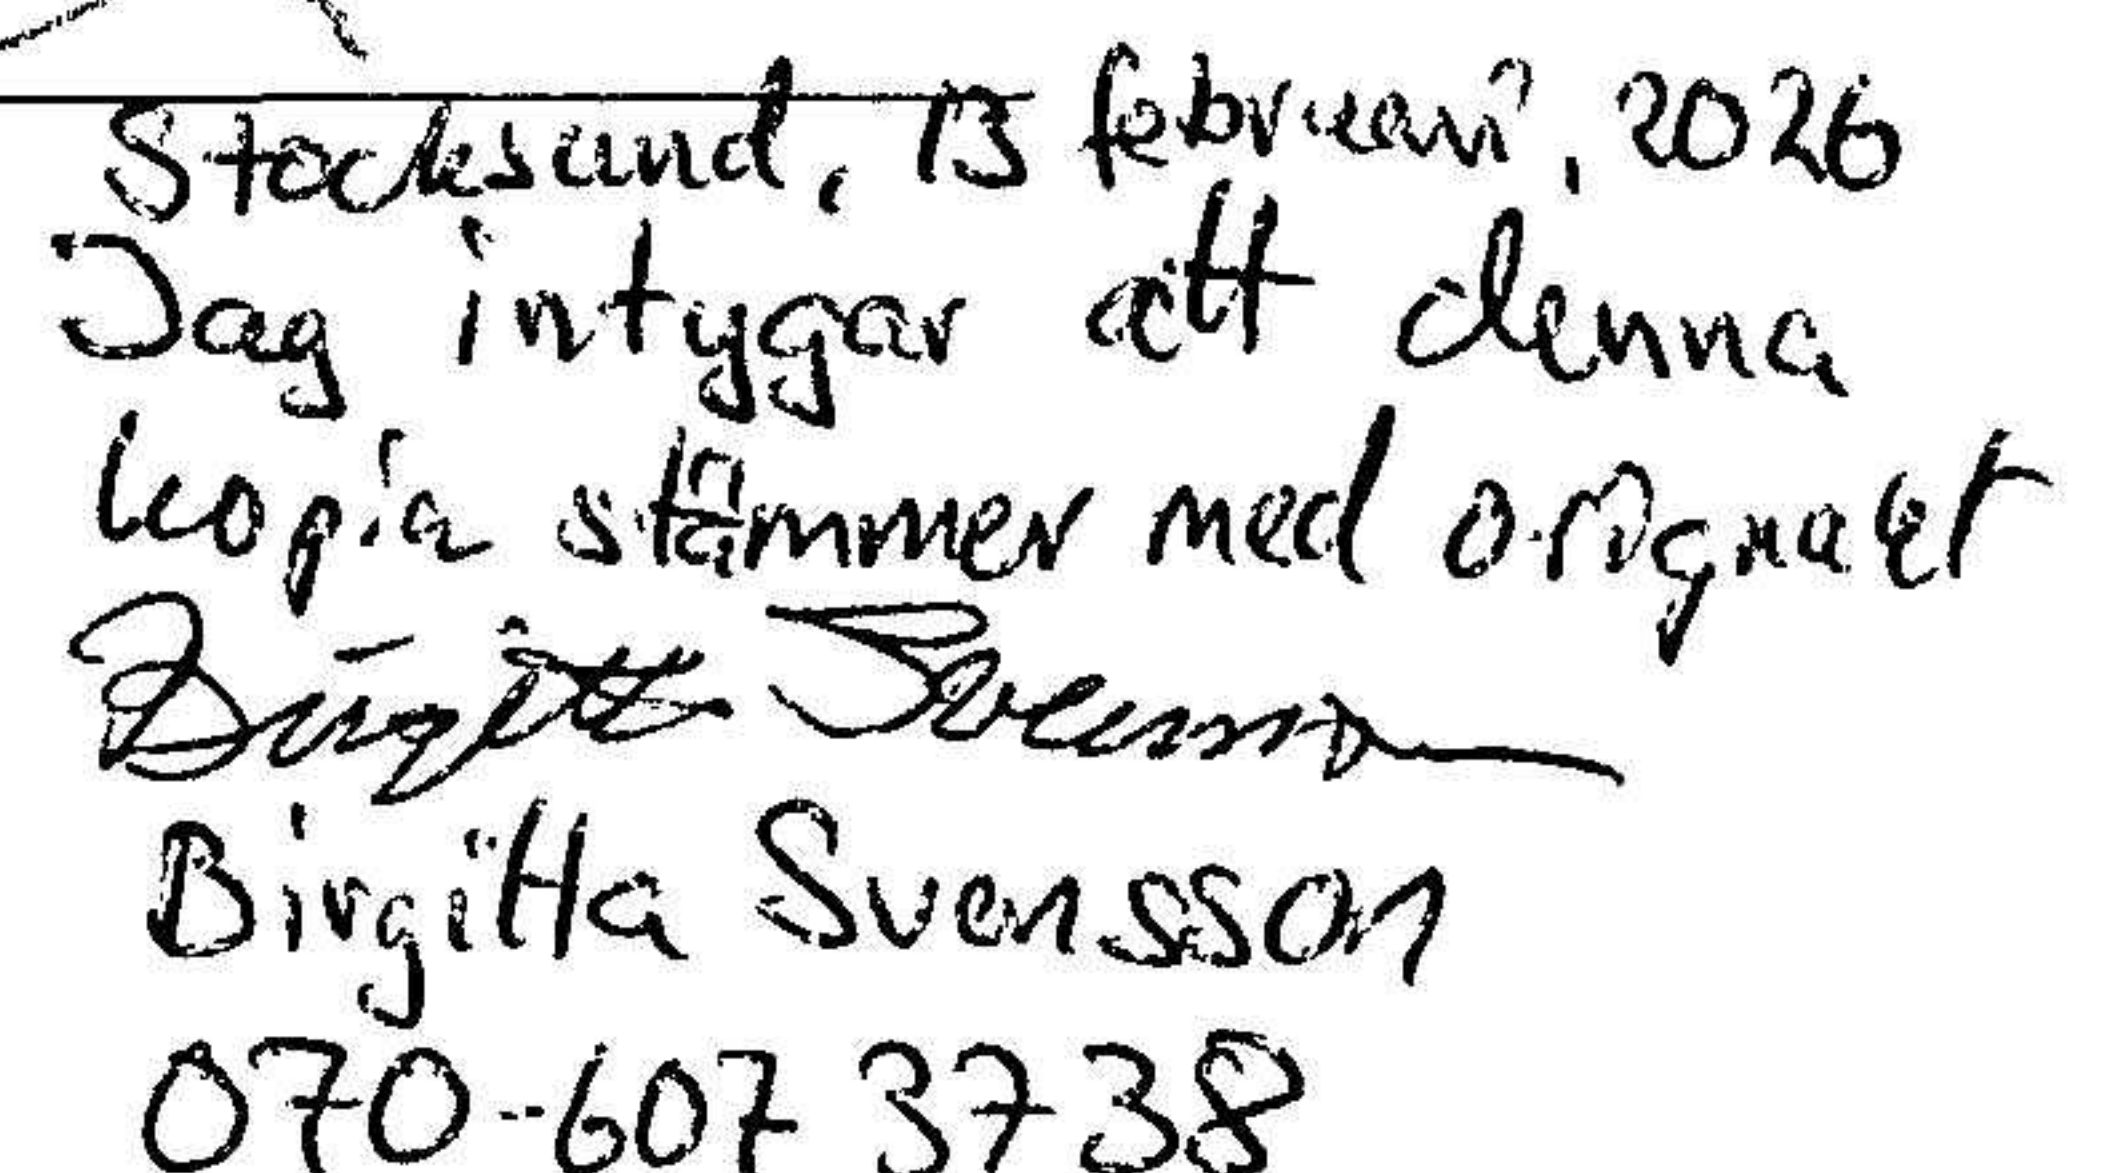 Stocksund, 13 februari, 2026
Jag intygar att denna
kopia stämmer med originalet
Birgitta Svensson
Birgitta Svensson
070-607 37 38